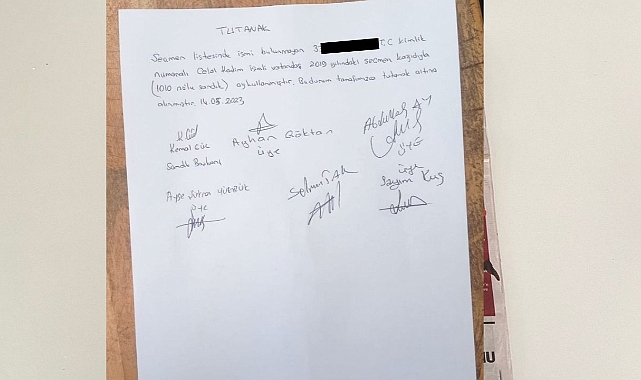 TUTANAK
Seçmen listesinde ismi bulunmayan 3 T.C kimlik
numaralı Celal Kadim isimli vatandaş 2019 yılındaki seçmen kağıdıyla
(1010 nolu sandık) oy kullanmıştır. Bu durum tarafımızca tutanak altına
alınmıştır. 14.05.2023
Kemal Güç Ayhan Göktan Abdullah AY
Sandık Başkanı üye ÜYE
Ayşe YÜRÜK üye
üye Kuş
NU